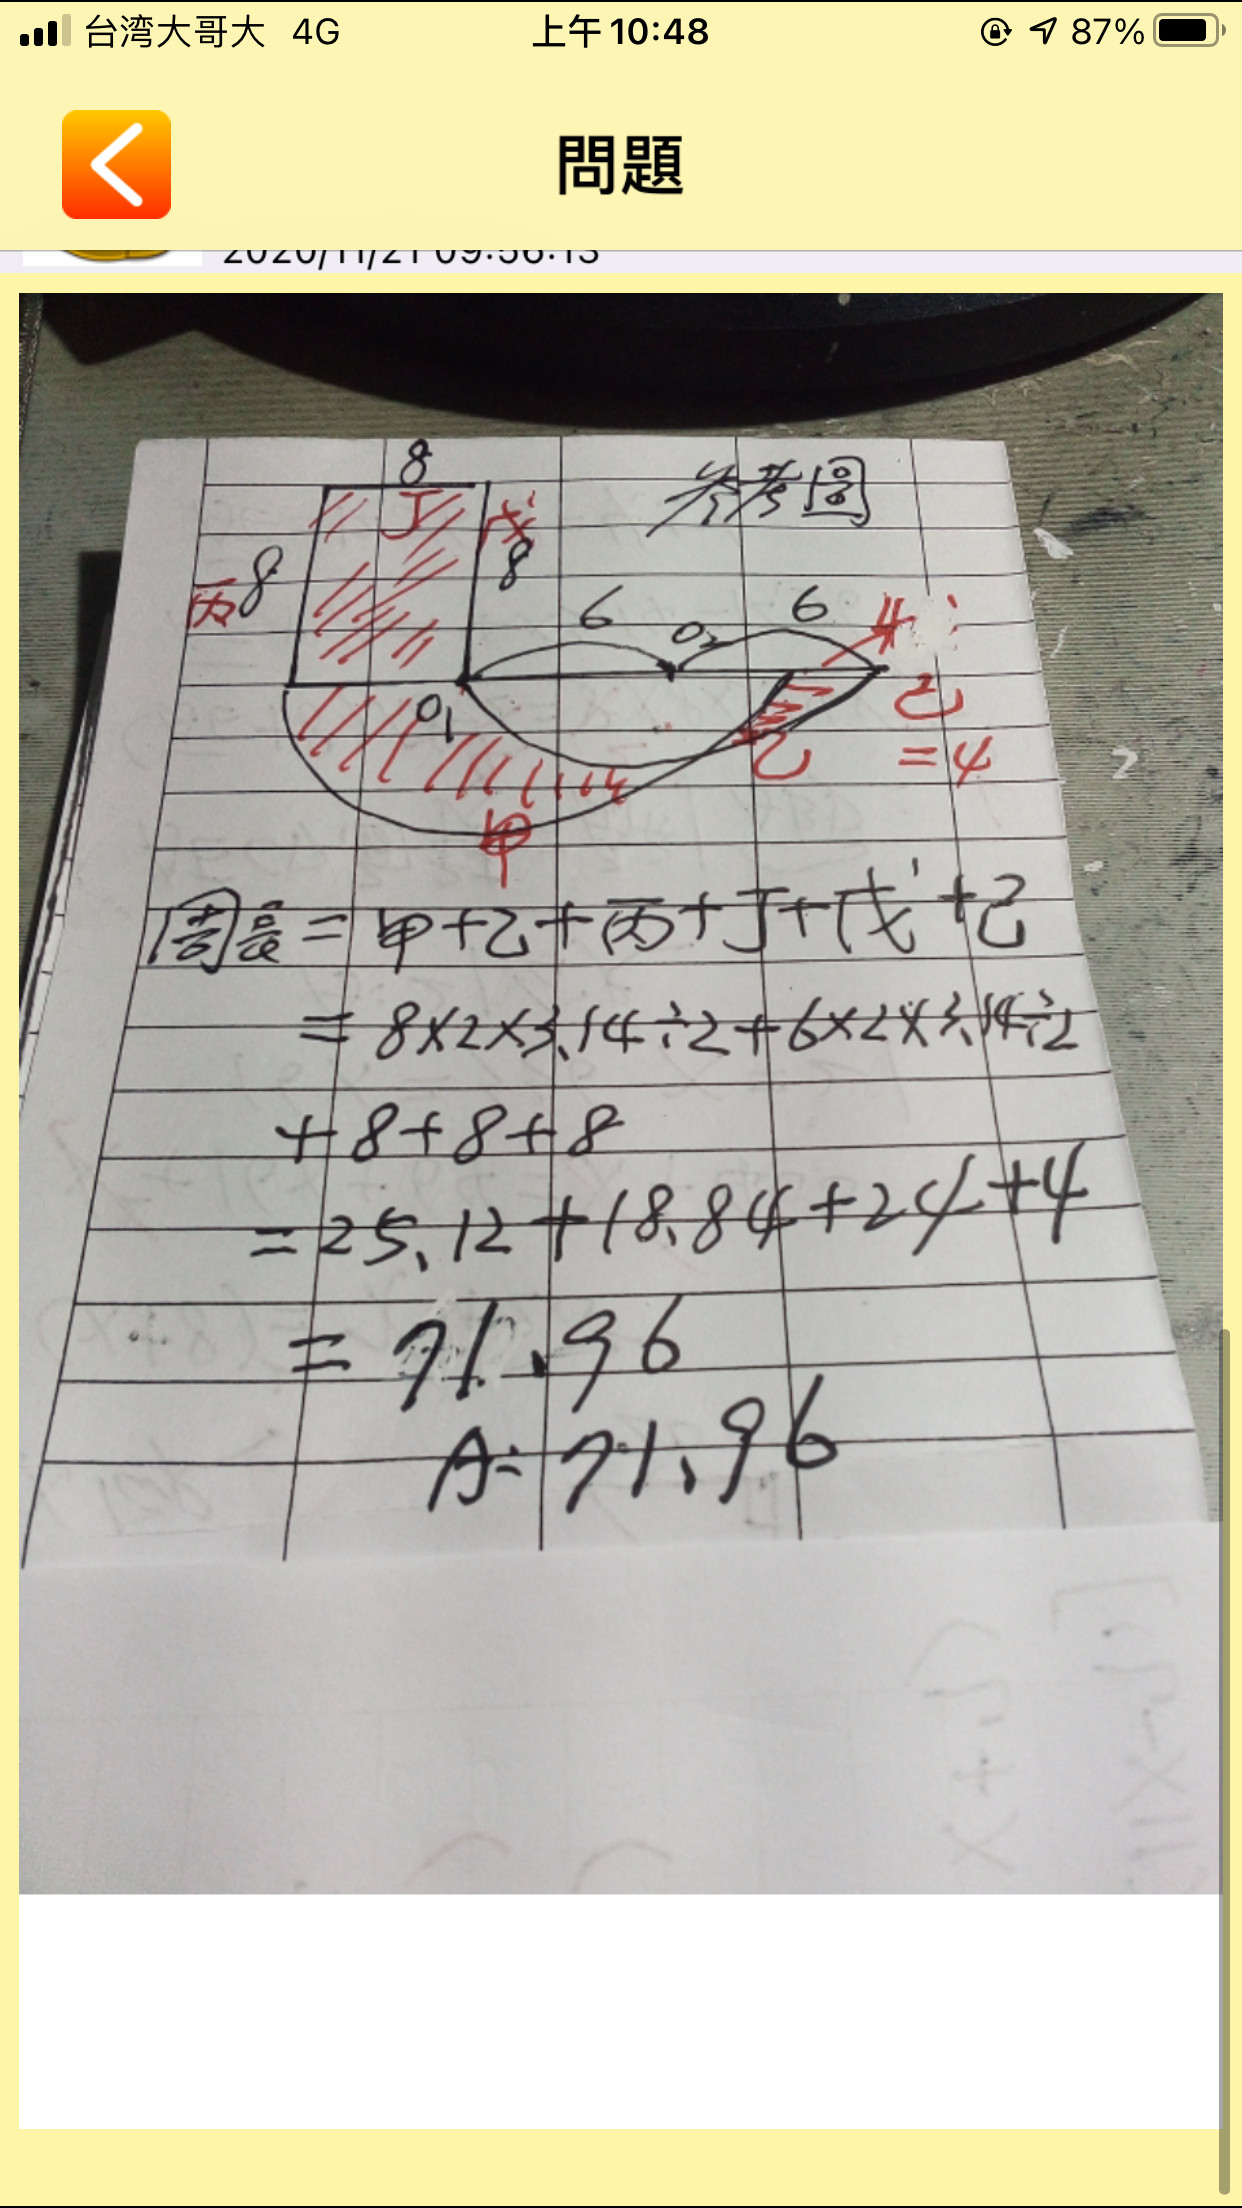 台湾大哥大 4G 上午10:48 87%
問題
2020/11/21 09:56:13
8 參考圖
丁 戊
丙 8 8
6 O₂ 6 4
O₁ 己
乙 =4
甲
周長=甲+乙+丙+丁+戊+己
=8×2×3.14÷2+6×2×3.14÷2
+8+8+8
=25.12+18.84+24+4
=71.96
A:71.96